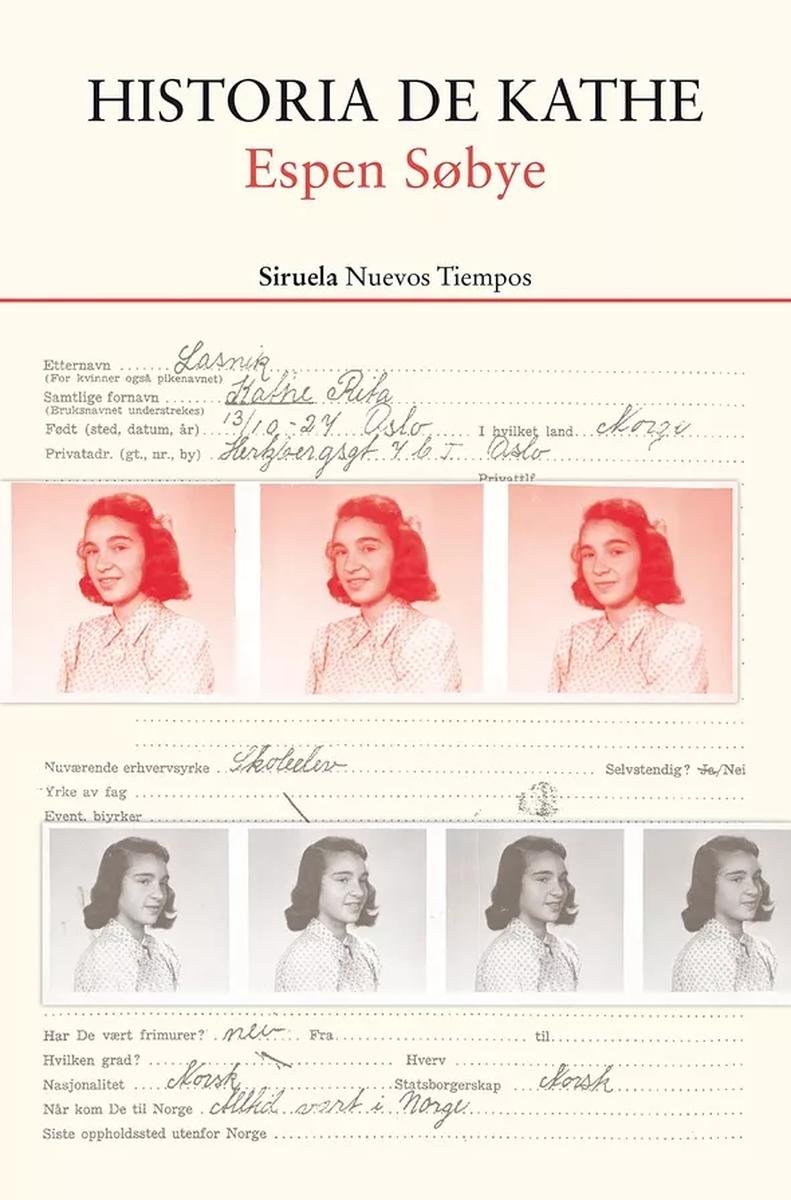 HISTORIA DE KATHE
Espen Søbye
Siruela Nuevos Tiempos
Etternavn Lasnik
(For kvinner også pikenavnet)
Samtlige fornavn Kathe Rita
(Bruksnavnet understrekes)
Født (sted, datum, år) 13/10-27 Oslo I hvilket land Norge
Privatadr. (gt., nr., by) Hertzbergsgt 7 Oslo
Privattlf
Nuværende erhvervsyrke Skoleelev Selvstendig? Ja/Nei
Yrke av fag
Event. biyrker
Har De vært frimurer? nei Fra til
Hvilken grad? Hverv
Nasjonalitet Norsk Statsborgerskap Norsk
Når kom De til Norge Alltid vært i Norge
Siste oppholdssted utenfor Norge